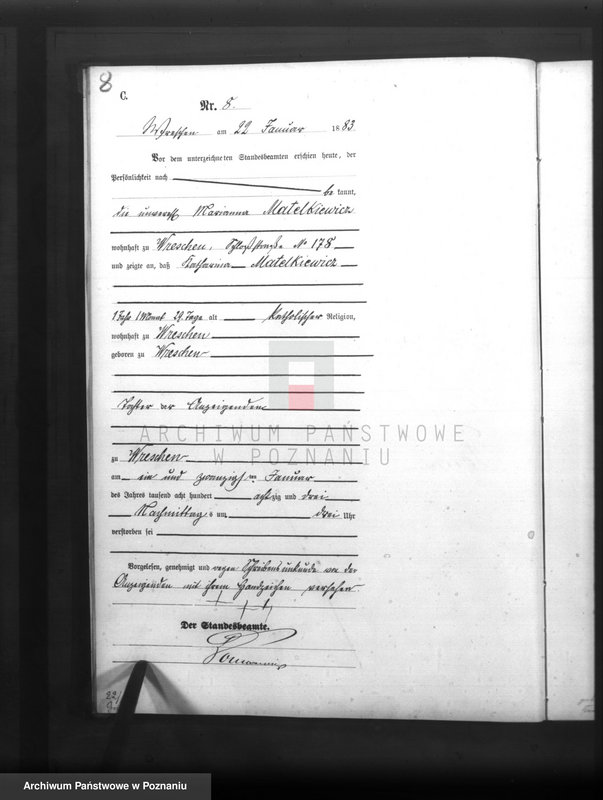 8
C.
Nr. 8.
Wreschen am 22 Januar 1883.
Vor dem unterzeichneten Standesbeamten erschien heute, der
Persönlichkeit nach
be kannt,
die unverehl. Marianna Matelkiewicz
wohnhaft zu Wreschen, Schloßstraße No 178
und zeigte an, daß Katharina Matelkiewicz
1 Jahr 1 Monat 29 Tage alt katholischer Religion,
wohnhaft zu Wreschen
geboren zu Wreschen
Tochter der Anzeigenden
ARCHIWUM PAŃSTWOWE
W POZNANIU
zu Wreschen
am ein und zwanzigsten Januar
des Jahres tausend acht hundert achtzig und drei
Nachmittags um drei Uhr
verstorben sei
Vorgelesen, genehmigt und wegen Schreibensunkunde von der
Anzeigenden mit ihrem Handzeichen versehen
+++
Der Standesbeamte.
22/
Archiwum Państwowe w Poznaniu